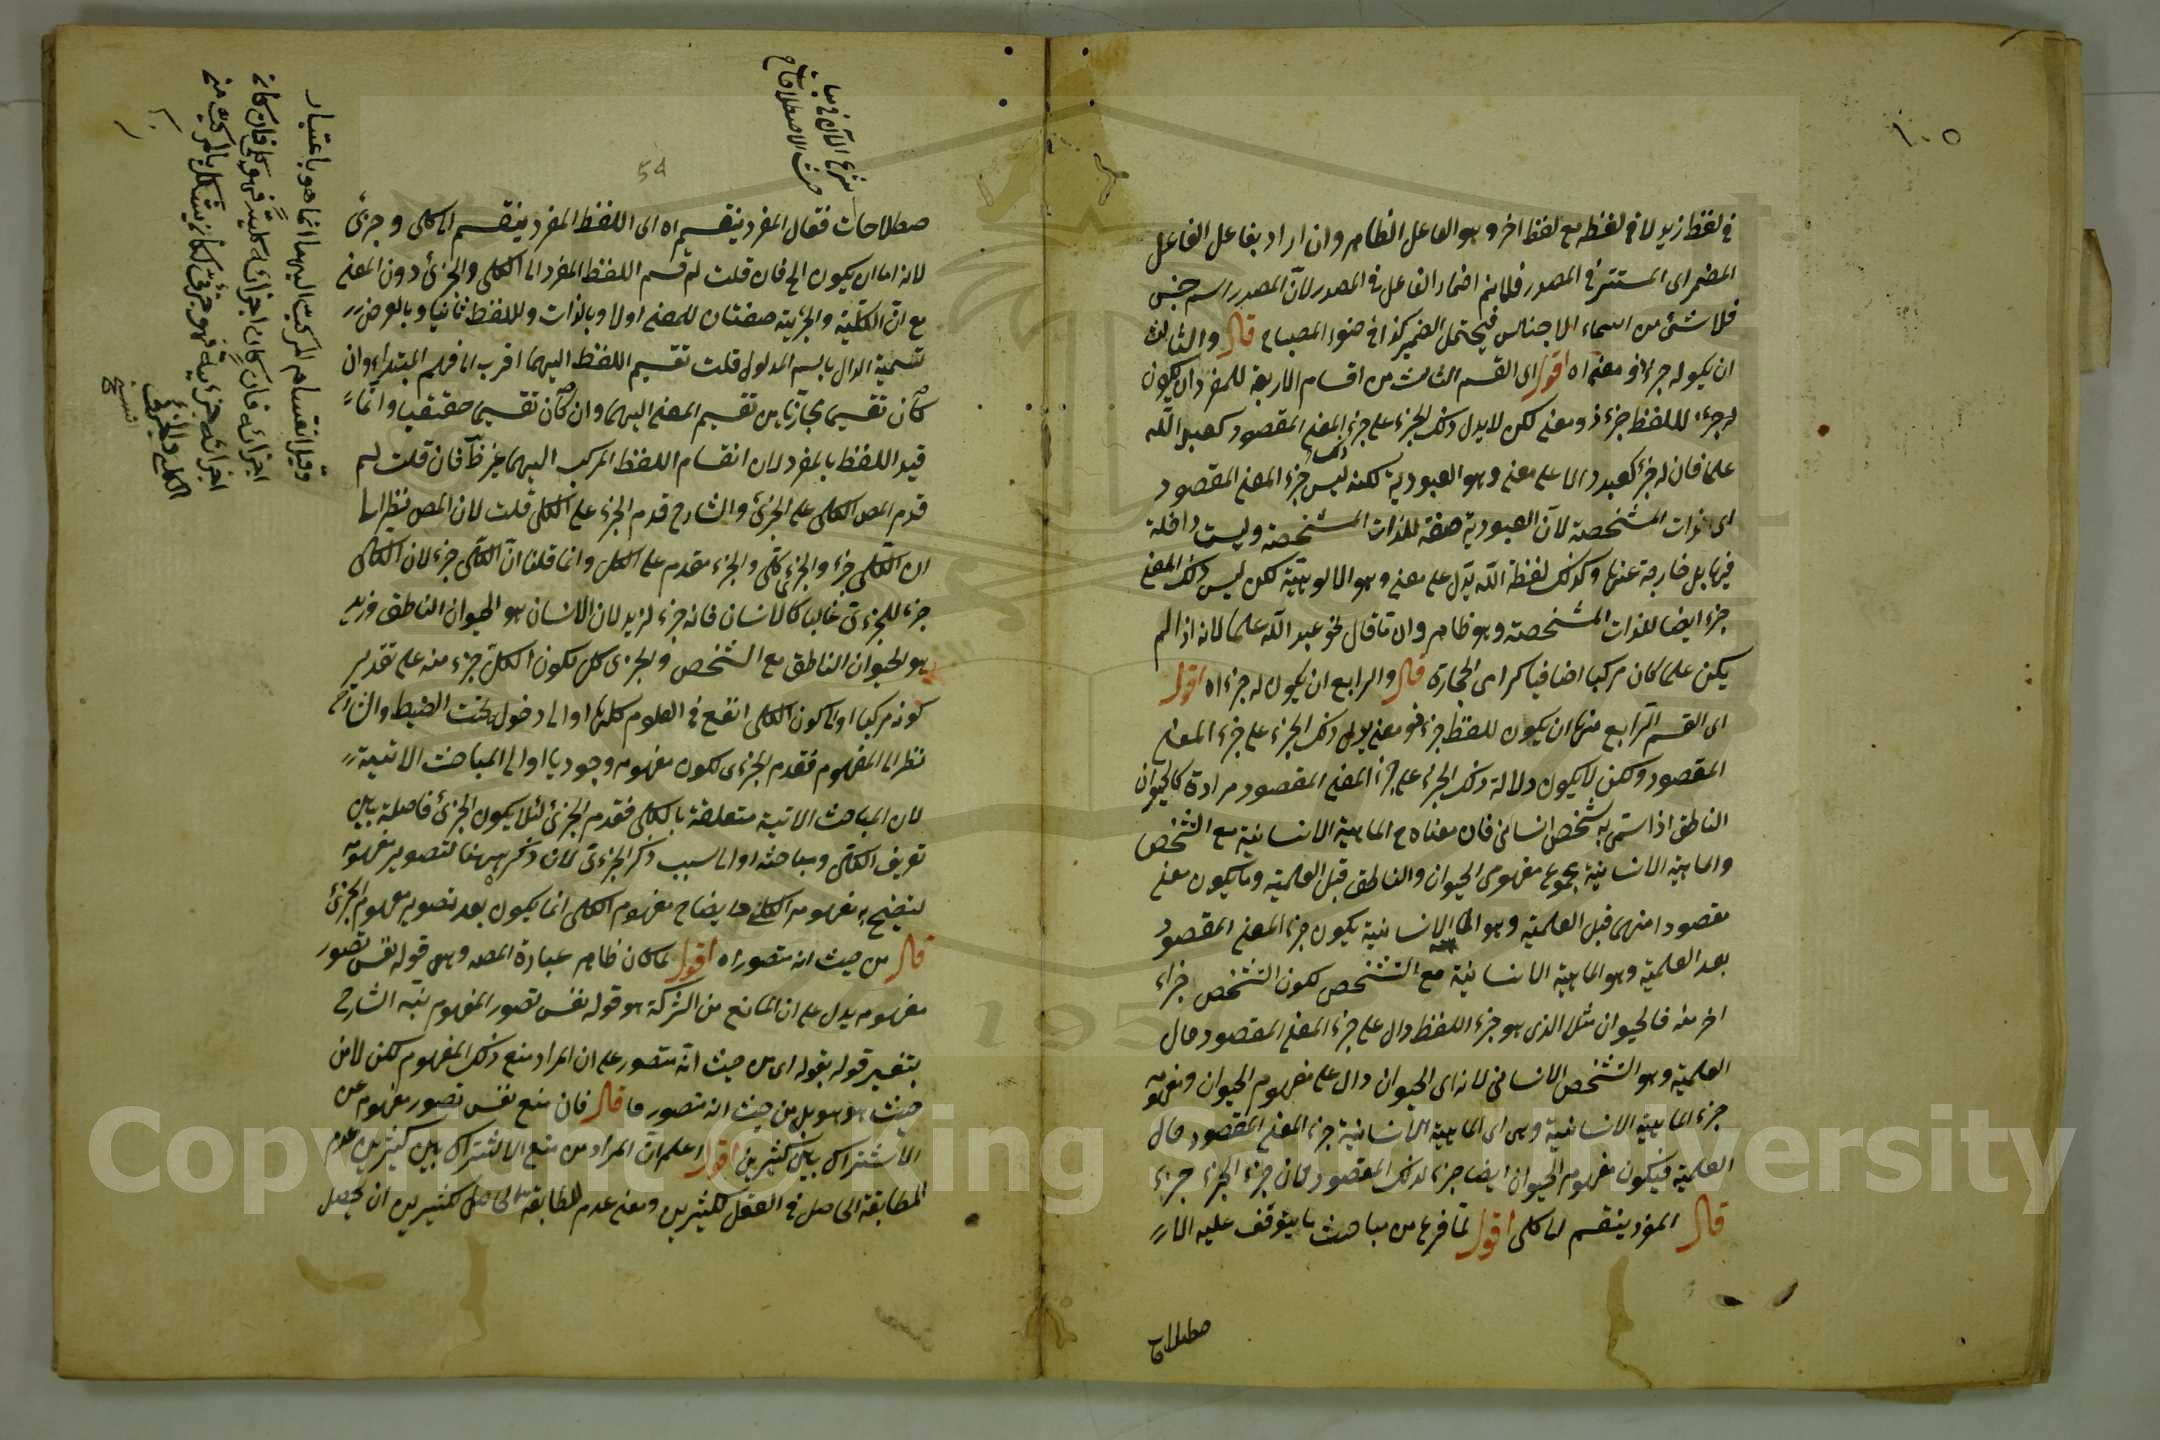 ١٠٥
في لفظ زيد لا في لفظه مع لفظ اخر وهو الفاعل الظاهر وان اراد بفاعل الفاعل
المضمر اى المستتر في المصدر فلا يتم اضمار الفاعل في المصدر لان المصدر اسم جنس
فلا شئ من اسماء الاجناس فيحتمل الضمير كذا في ضوء المصباح قال والثالث
ان يكون له جزء ذو معنى اه اقول اى القسم الثالث من اقسام الاربعة للمفرد ان يكون
له جزء اى للفظ جزء ذو معنى لكن لا يدل ذلك الجزء على جزء المعنى المقصود كعبد الله
علما فان له جزء كعبد دالا على معنى وهو العبودية لكنه ليس ذلك جزء المعنى المقصود
اى الذات المشخصة لان العبودية صفة للذات المشخصة وليست داخلة
فيها بل خارجة عنها وكذلك لفظة الله يدل على معنى وهو الالوهية لكن ليس ذلك المعنى
جزء ايضا للذات المشخصة وهو ظاهر وانما قال نحو عبد الله علما لانه اذا لم
يكن علما كان مركبا اضافيا كرامى الحجارة قال والرابع ان يكون له جزء اه اقول
اى القسم الرابع منها ان يكون للفظ جزء ذو معنى يدل ذلك الجزء على جزء المعنى
المقصود ولكن لا يكون دلالة ذلك الجزء على جزء المعنى المقصود مرادة كالحيوان
الناطق اذا سمى به شخص انسانى فان معناه ح الماهية الانسانية مع التشخص
والماهية الانسانية مجموع مفهومى الحيوان والناطق قبل العلمية وما يكون معنى
مقصودا منهما قبل العلمية وهو الماهية الانسانية يكون جزء المعنى المقصود
بعد العلمية وهو الماهية الانسانية مع التشخص لكون التشخص جزاء
اخر منه فالحيوان مثلا الذى هو جزء اللفظ دال على جزء المعنى المقصود حال
العلمية وهو التشخص الانسانى لانه اى الحيوان دال على مفهوم الحيوان ومفهومه
جزء الماهية الانسانية وهى اى الماهية الانسانية جزء المعنى المقصود حال
العلمية فيكون مفهوم الحيوان ايضا جزء لذلك المقصود لان جزء الجزء جزء
قال المفرد ينقسم الى كلى اقول لما فرغ من مباحث ما يتوقف عليه
صطلاح
54
شرع الآن في بيا
حث الاصطلاحا
صطلاحات فقال المفرد ينقسم اه اى اللفظ المفرد ينقسم الى كلى وجزئى
لانه اما ان يكون الخ فان قلت لم قسم اللفظ المفرد الى الكلى والجزئى دون المعنى
مع ان الكلية والجزئية صفتان للمعنى اولا وبالذات وللفظ ثانيا وبالعرض
تسمية الدال باسم المدلول قلت تقسيم اللفظ اليهما اقرب الى فهم المبتدى وان
كان تقسيما مجازيا من تقسيم المعنى اليهما وان كان تقسيما حقيقيا وانما
قيد اللفظ بالمفرد لان انقسام اللفظ المركب اليهما غير ظ فان قلت لم
قدم المص الكلى على الجزئى والشارح قدم الجزء على الكلى قلت لان المص نظر الى
ان الكلى جزء والجزئى كلى والجزء مقدم على الكل وانما قلنا ان الكلى جزء لان الكلى
جزء للجزئى غالبا كالانسان فانه جزء لزيد لان الانسان هو الحيوان الناطق وزيد
هو الحيوان الناطق مع الشخص والجزئى كل لكون الكلى جزء منه على تقدير
كونه مركبا او الى كون الكلى انفع في العلوم كلها او الى دخوله تحت الضبط والشارح
نظر الى المفهوم فقدم الجزئى لكون مفهومه وجوديا او الى المباحث الاتية
لان المباحث الاتية متعلقة بالكلى فقدم الجزئى لئلا يكون الجزئى فاصلة بين
تعريف الكلى ومباحثه او الى سبب ذكر الجزئى لان ذكره ههنا لتصوير مفهومه
ليتضح به مفهوم الكلى وايضاح مفهوم الكلى انما يكون بعد تصوير مفهوم الجزئى
قال من حيث انه متصور اه اقول لما كان ظاهر عبارة المص وهى قوله نفس تصور
مفهومه يدل على ان المانع من الشركة هو قوله نفس تصور المفهوم نبه الشارح
بتفسير قوله بقوله اى من حيث انه متصور على ان المراد منع ذلك المفهوم لكن لا من
حيث هو هو بل من حيث انه متصور قال فان منع نفس تصور مفهومه عن
الاشتراك بين كثيرين اقول اعلم ان المراد من منع الاشتراك بين كثيرين عدم
المطابقة الحاصل في العقل لكثيرين ومعنى عدم المطابقة الحاصل لكثيرين ان يحصل
وقيل انقسام المركب اليهما انما هو باعتبار
اجزائه فان كان اجزائه كلية فهو كلى فان كان
اجزائه جزئية فهو جزئى لكن يشكل بالمركب من
الكلى والجزئى
نسخ
Copyright © King Saud University
1957